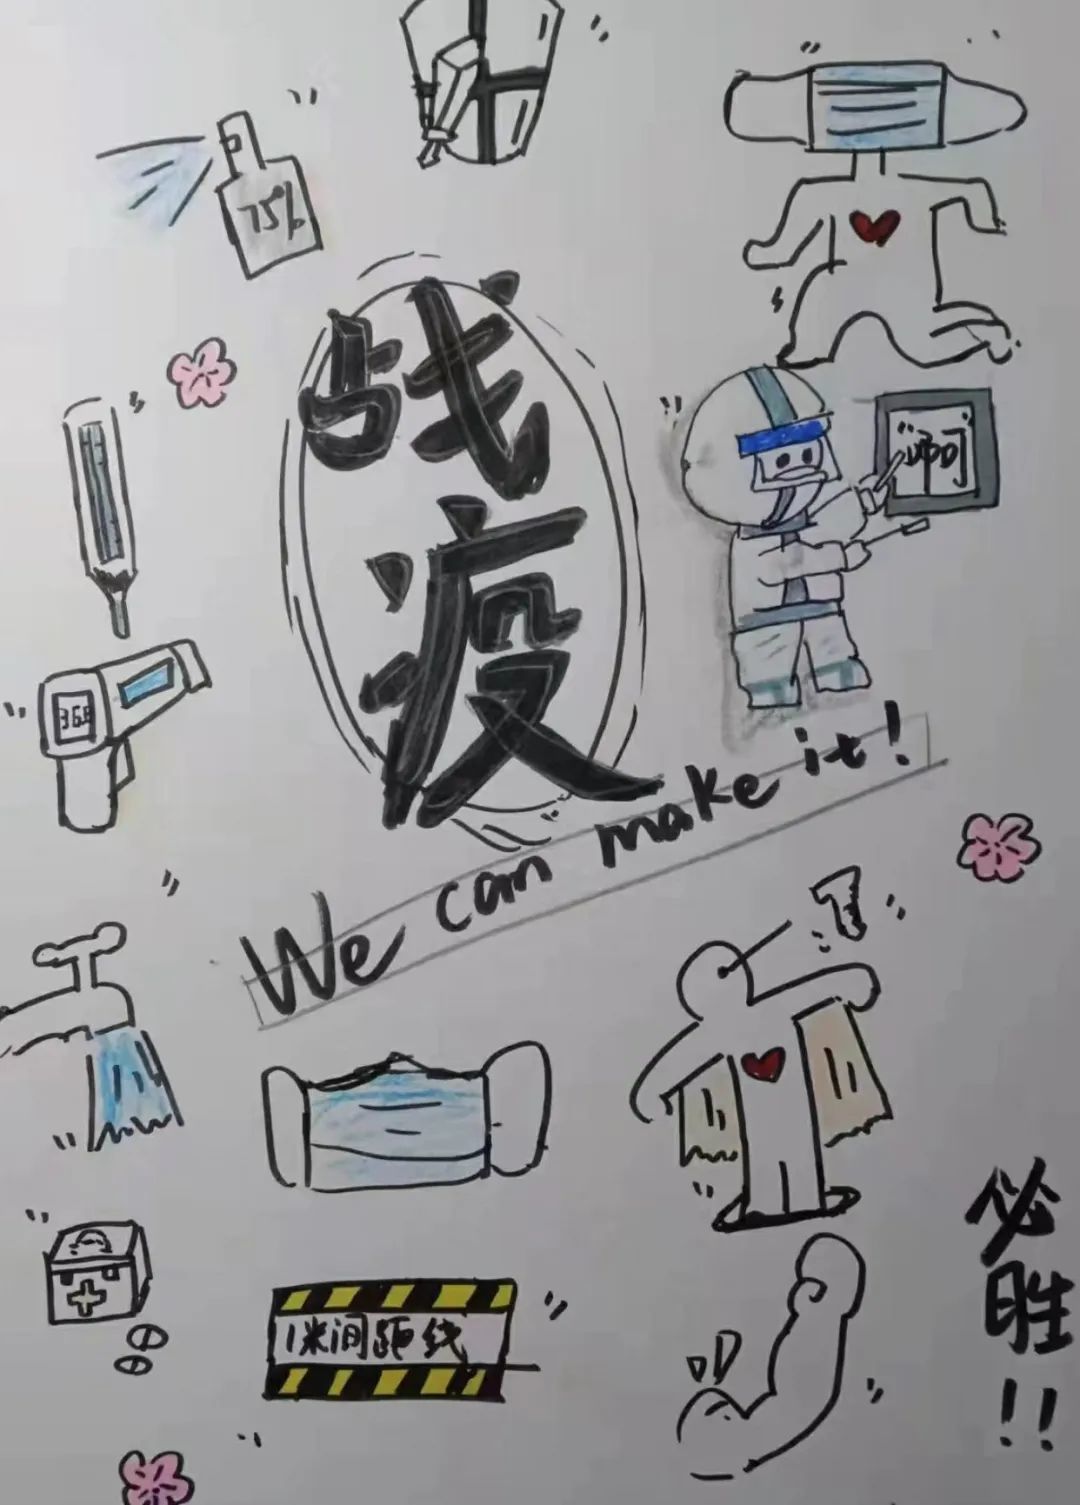 75%
战
疫
"啊"
36.8
We can make it!
1米间距线
必
胜
!!